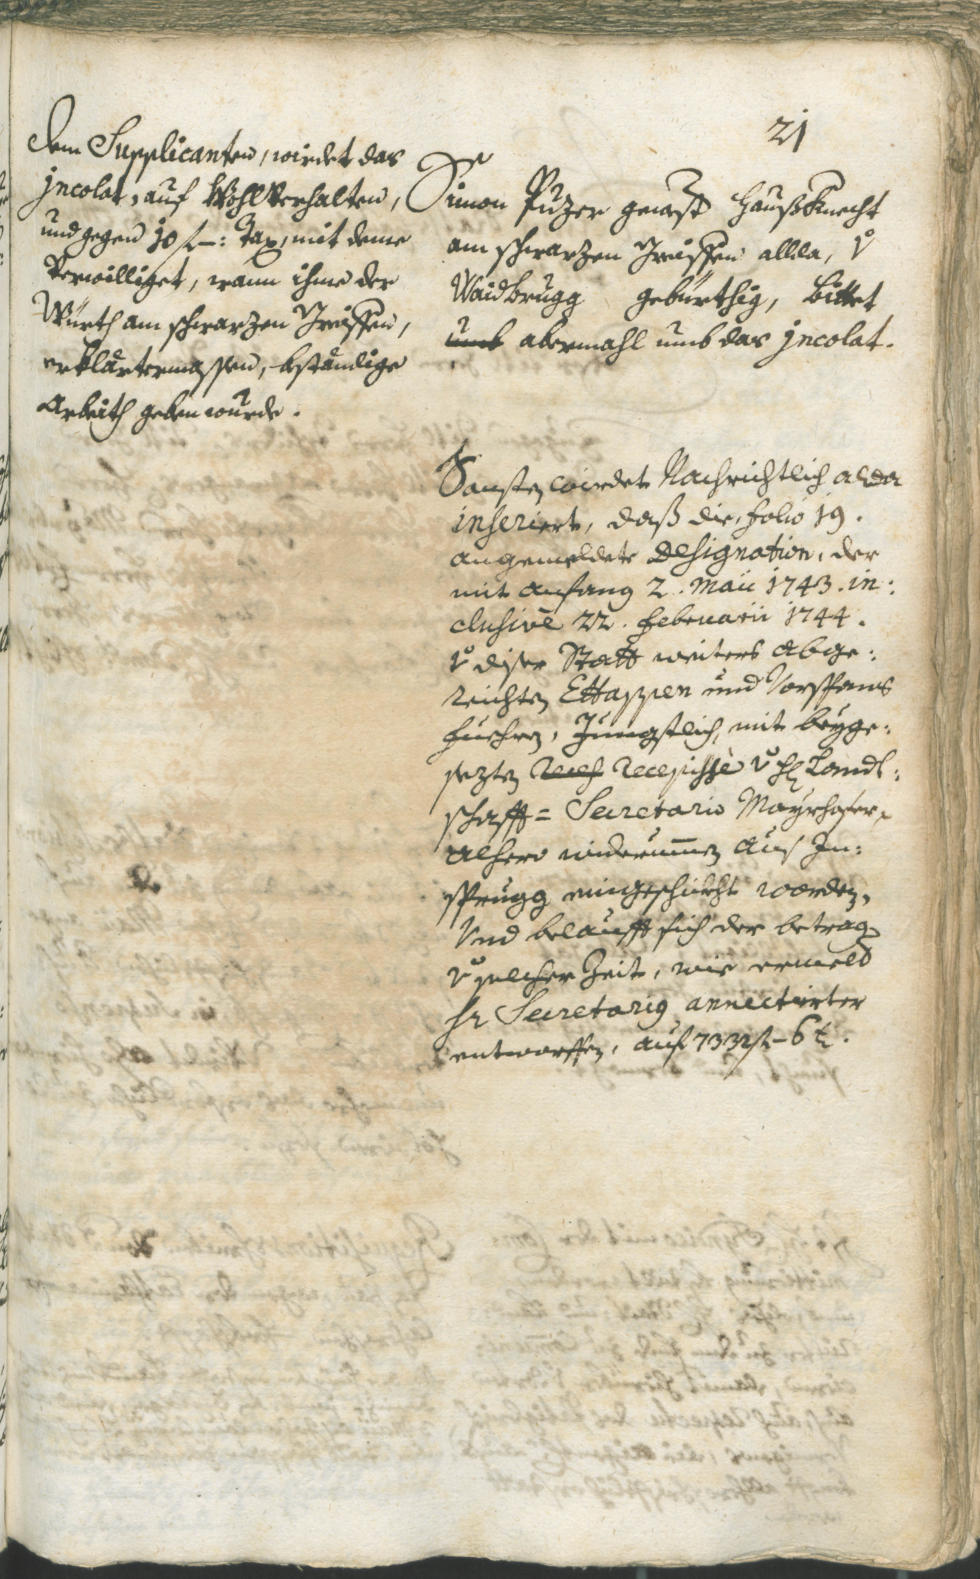 21
Dem Supplicanten, wirdet das
jncolat, auf Wohlverhalten,
und gegen 10 f –: Tax, mit deme
verwilliget, wann ihme der
Würth am schwarzen Greiffen,
erklärtermassen, bständige
Arbeith geben wurde.
Simon Puzer gewest Haußknecht
am schwarzen Greiffen allda, v
Waidbrugg gebürthig, bittet
umb abermahl umb das jncolat.
Sonsten wirdet Nachrichtlich alda
inseriert, daß die, folio 19.
angemeldete Designation, der
mit anfang 2. Maii 1743. in:
clusivè 22. Februarii 1744.
v diser Statt weiters abge:
reichten Ettappen und Vorspanns
fuehren, Jüngstlich, mit beyge:
sezten Recepisse v H Landt:
schafft= Secretario Mayrhofer,
alhero widerumen aus Jn:
sprugg eingeschickht worden,
Und belaufft sich der betrag
v solcher Zeit, wie ermelt
Hr Secretarig annectierter
entworffen, auf 7332 f – 6 x.